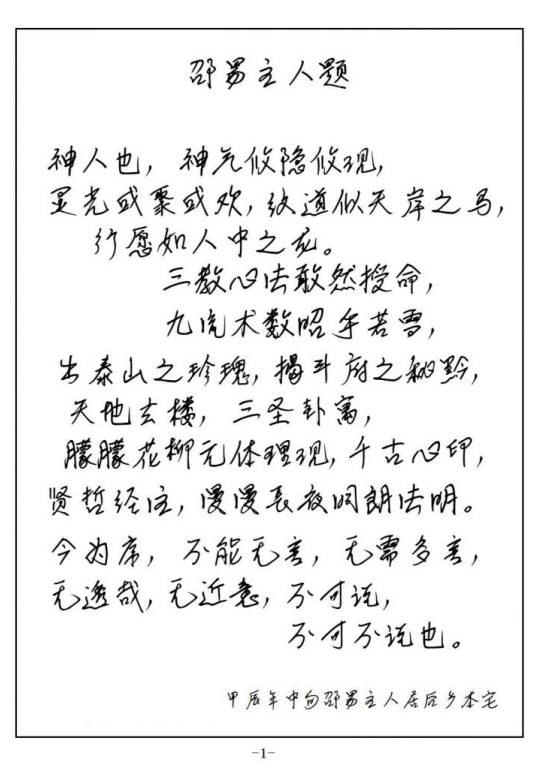 邵男主人题
神人也，神气攸隐攸现，
灵光或聚或欢，纹道似天岸之马，
行愿如人中之龙。
三教心法敢然授命，
九流术数昭乎若雪，
出泰山之珍瑰，揭斗府之秘黔，
天地玄楼，三圣卦寓，
朦朦花柳元体理现，千古心印，
贤哲经注，漫漫长夜同朗法明。
今为序，不能无言，无需多言，
无逸哉，无近意，不可说，
不可不说也。
甲辰年中旬邵男主人居后乡本宅
-1-